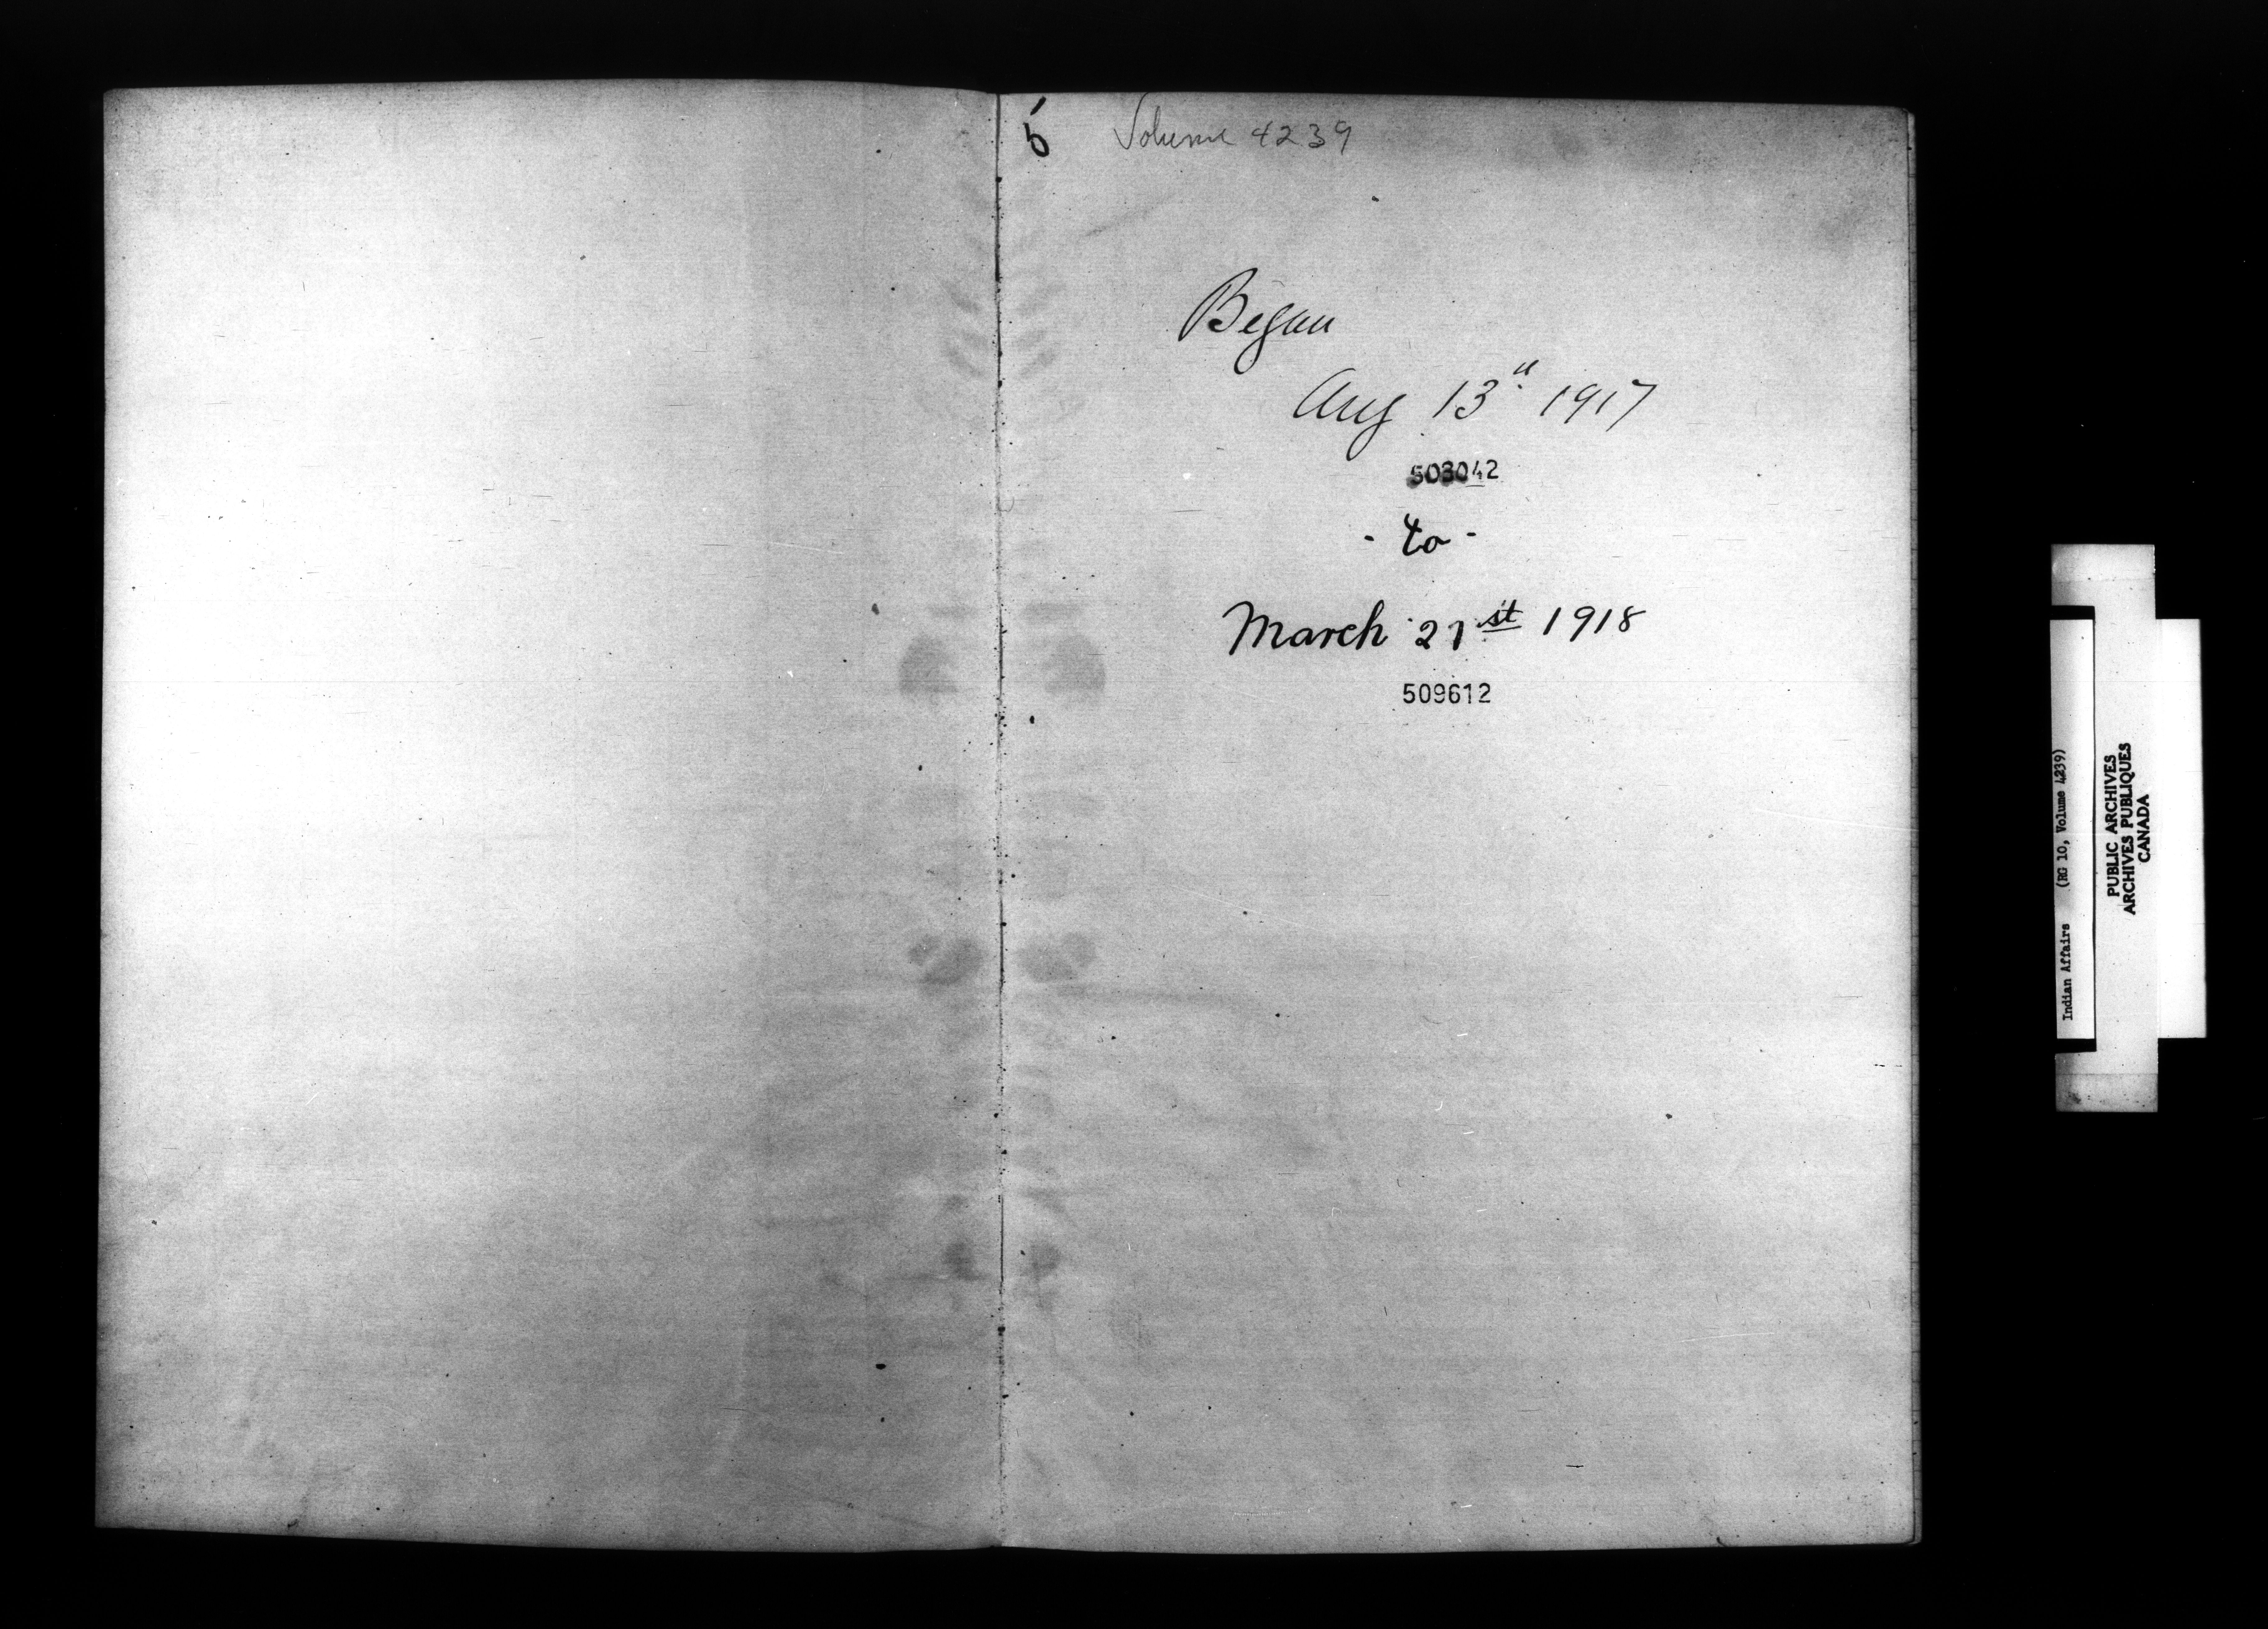 5 Volume 4239
Began
Aug 13th 1917
503042
- to -
March 21st 1918
509612
Indian Affairs (RG 10, Volume 4239)
PUBLIC ARCHIVES
ARCHIVES PUBLIQUES
CANADA